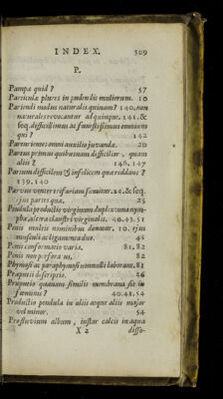 INDEX. 509
P.
Pampæ quid? 57
Particulæ plures in pudendis mulierum. 10
Pariendi modus naturalis quinam? 140. non
naturales revocantur ad quinque. 141. &
seq. difficillimus ac funestissimus omnium
qui? 142
Parturientes omni auxilio juvandæ. 20
Partus primus quibusnam difficilior, quam
aliis? 146. 147
Partum difficilem & infelicem quæ reddant?
139. 140
Parvus venter rifariam sumitur. 12. & seq.
ejus partes quæ. 25
Pendula productio virginum duplex una nym-
pha, altera claustri virginalis. 40. 43. 51
Penis multis nominibus donatur. 10. ejus
musculi ac ligamenta duo. 48
Penis conformatio varia. 81. 82
Penis non perforatus. 82
Phymosi ac paraphymosi nonnulli laborant. 81
Præputii descriptio. 26
Præputio quænam similis membrana sit in
fæminis? 40. 48. 54
Productio pendula in aliis æque aliis major
vel minor. 54
Profluvium album, instar calcis in aqua
X 2 disso-